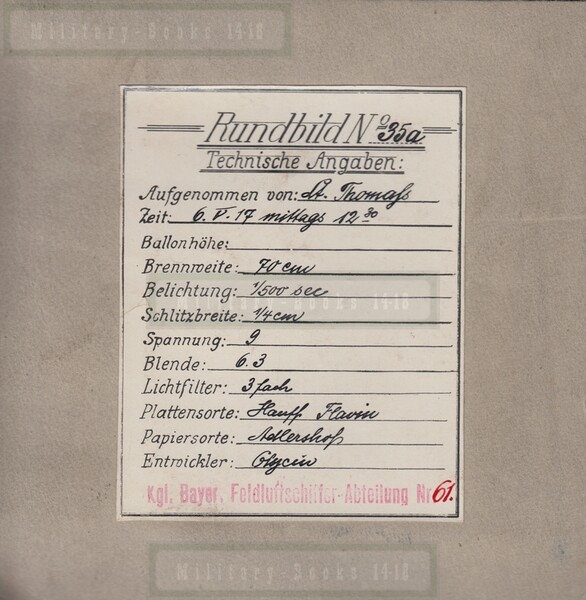 Military-Books 14-18
Rundbild No 35a
Technische Angaben:
Aufgenommen von: Lt. Thomaß
Zeit: 6. V. 17 mittags 12 30
Ballonhöhe:
Brennweite: 70 cm
Belichtung: 1/500 sec
Military-Books 14-18
Schlitzbreite: 1/4 cm
Spannung: 9
Blende: 6.3
Lichtfilter: 3 fach
Plattensorte: Hauff Flavin
Papiersorte: Adlershof
Entwickler: Glycin
Kgl. Bayer. Feldluftschiffer-Abteilung Nr 61.
Military-Books 14-18